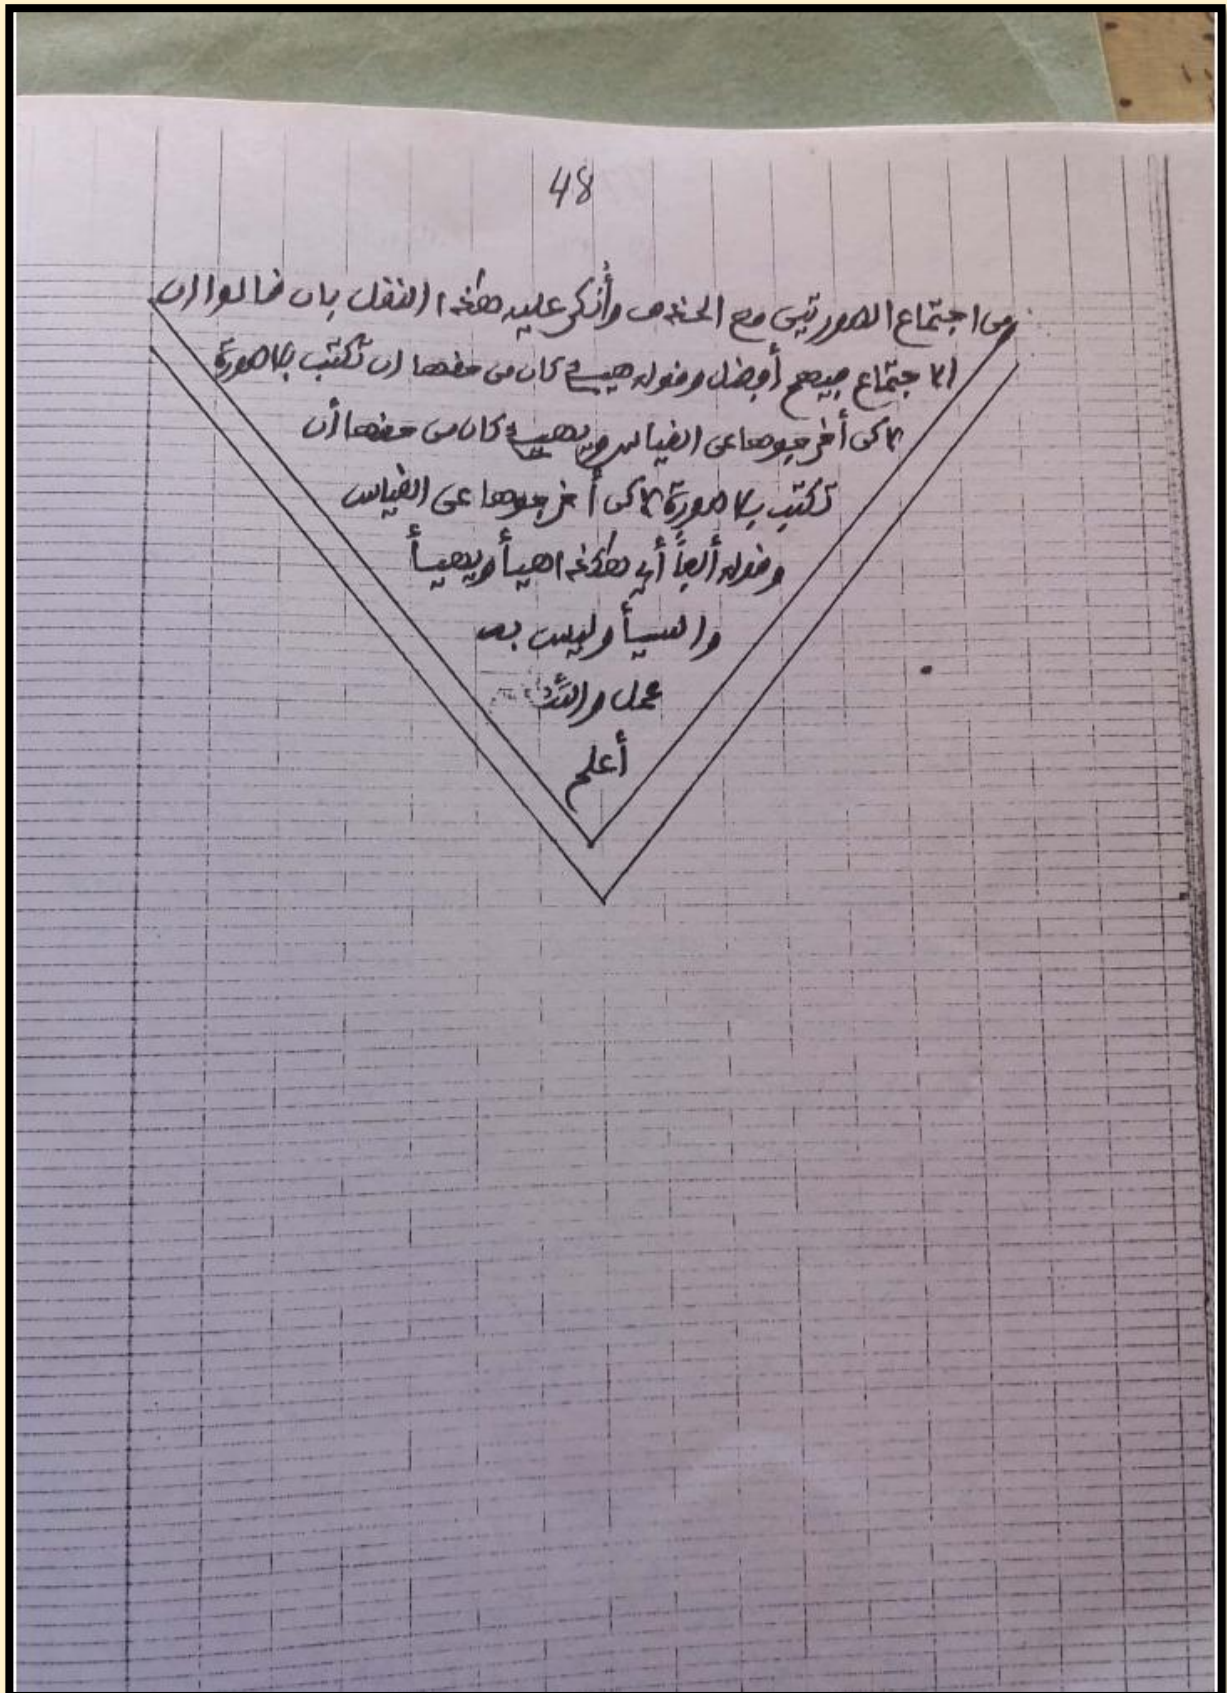 48
من اجتماع الصورتين مع الحذف وأنكر عليه هذا النقل بان قالوا ان
الاجتماع فيهم أفضل وقوله هيـے كان من حقها ان تكتب بلا صورة
لاكن أخرجوها عن القياس ويهيـے كان من حقها أن
تكتب بلا صورة لاكن أخرجوها عن القياس
وقوله ألفاً أي هاكذا هيأ ويهيأ
والسيأ وليس به
عمل والله
أعلم